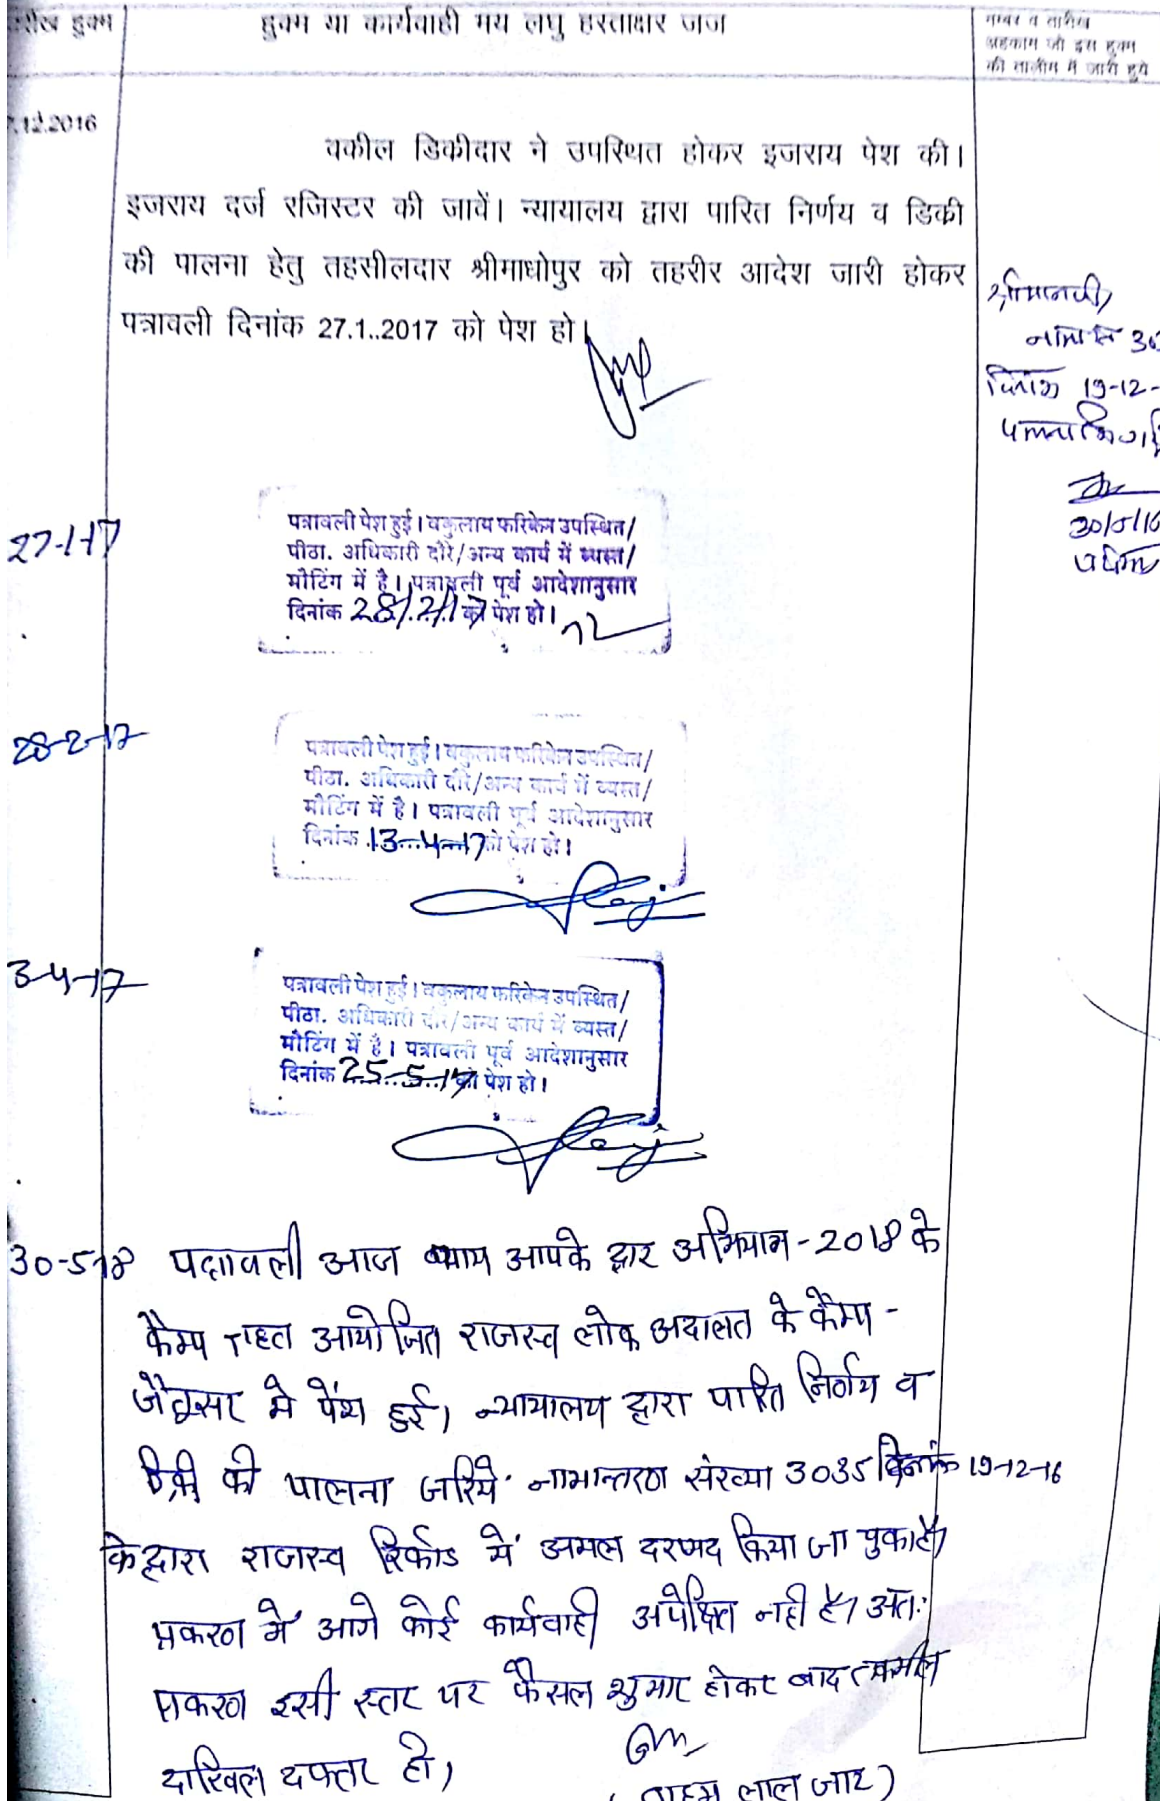 हुक्म
हुक्म या कार्यवाही मय लघु हस्ताक्षर जज
नम्बर व तारीख
अहकाम जो इस हुक्म
की तामील में जारी हुये
.12.2016
वकील डिकीदार ने उपस्थित होकर इजराय पेश की।
इजराय दर्ज रजिस्टर की जावें। न्यायालय द्वारा पारित निर्णय व डिकी
की पालना हेतु तहसीलदार श्रीमाधोपुर को तहरीर आदेश जारी होकर
पत्रावली दिनांक 27.1..2017 को पेश हो।
श्रीमानजी
दिनांक 19-12-
27-1-17
पत्रावली पेश हुई। वकुलाय फरिकेन उपस्थित/
पीठा. अधिकारी दौरे/अन्य कार्य में व्यस्त/
मीटिंग में है। पत्रावली पूर्व आदेशानुसार
दिनांक 28/2/17 को पेश हो।
28-2-17
पत्रावली पेश हुई। वकुलाय फरिकेन उपस्थित/
पीठा. अधिकारी दौरे/अन्य कार्य में व्यस्त/
मीटिंग में है। पत्रावली पूर्व आदेशानुसार
दिनांक 13-4-17 को पेश हो।
3-4-17
पत्रावली पेश हुई। वकुलाय फरिकेन उपस्थित/
पीठा. अधिकारी दौरे/अन्य कार्य में व्यस्त/
मीटिंग में है। पत्रावली पूर्व आदेशानुसार
दिनांक 25-5-17 को पेश हो।
30-5-18 पत्रावली आज न्याय आपके द्वार अभियान-2018 के
कैम्प तहत आयोजित राजस्व लोक अदालत के कैम्प -
में पेश हुई। न्यायालय द्वारा पारित निर्णय व
डिक्री की पालना जरिये नामान्तरण संख्या 3035 दिनांक 19-12-16
के द्वारा राजस्व रिकॉर्ड में अमल दरामद किया जा चुका है।
प्रकरण में आगे कोई कार्यवाही अपेक्षित नही है। अतः
प्रकरण इसी स्तर पर फैसल शुमार होकर बाद तकमील
दाखिल दफ्तर हो।
लाल जाट)